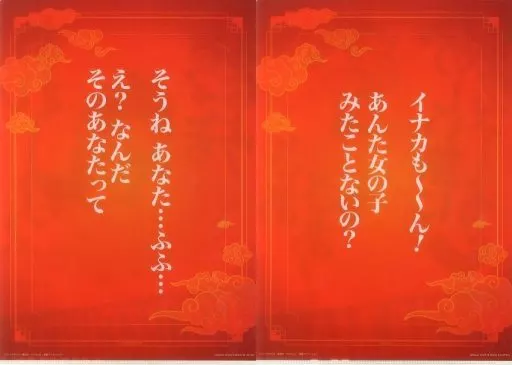 そうね あなた…ふふ…
え？ なんだ
そのあなたって
イナカも〜〜ん！
あんた女の子
みたことないの？